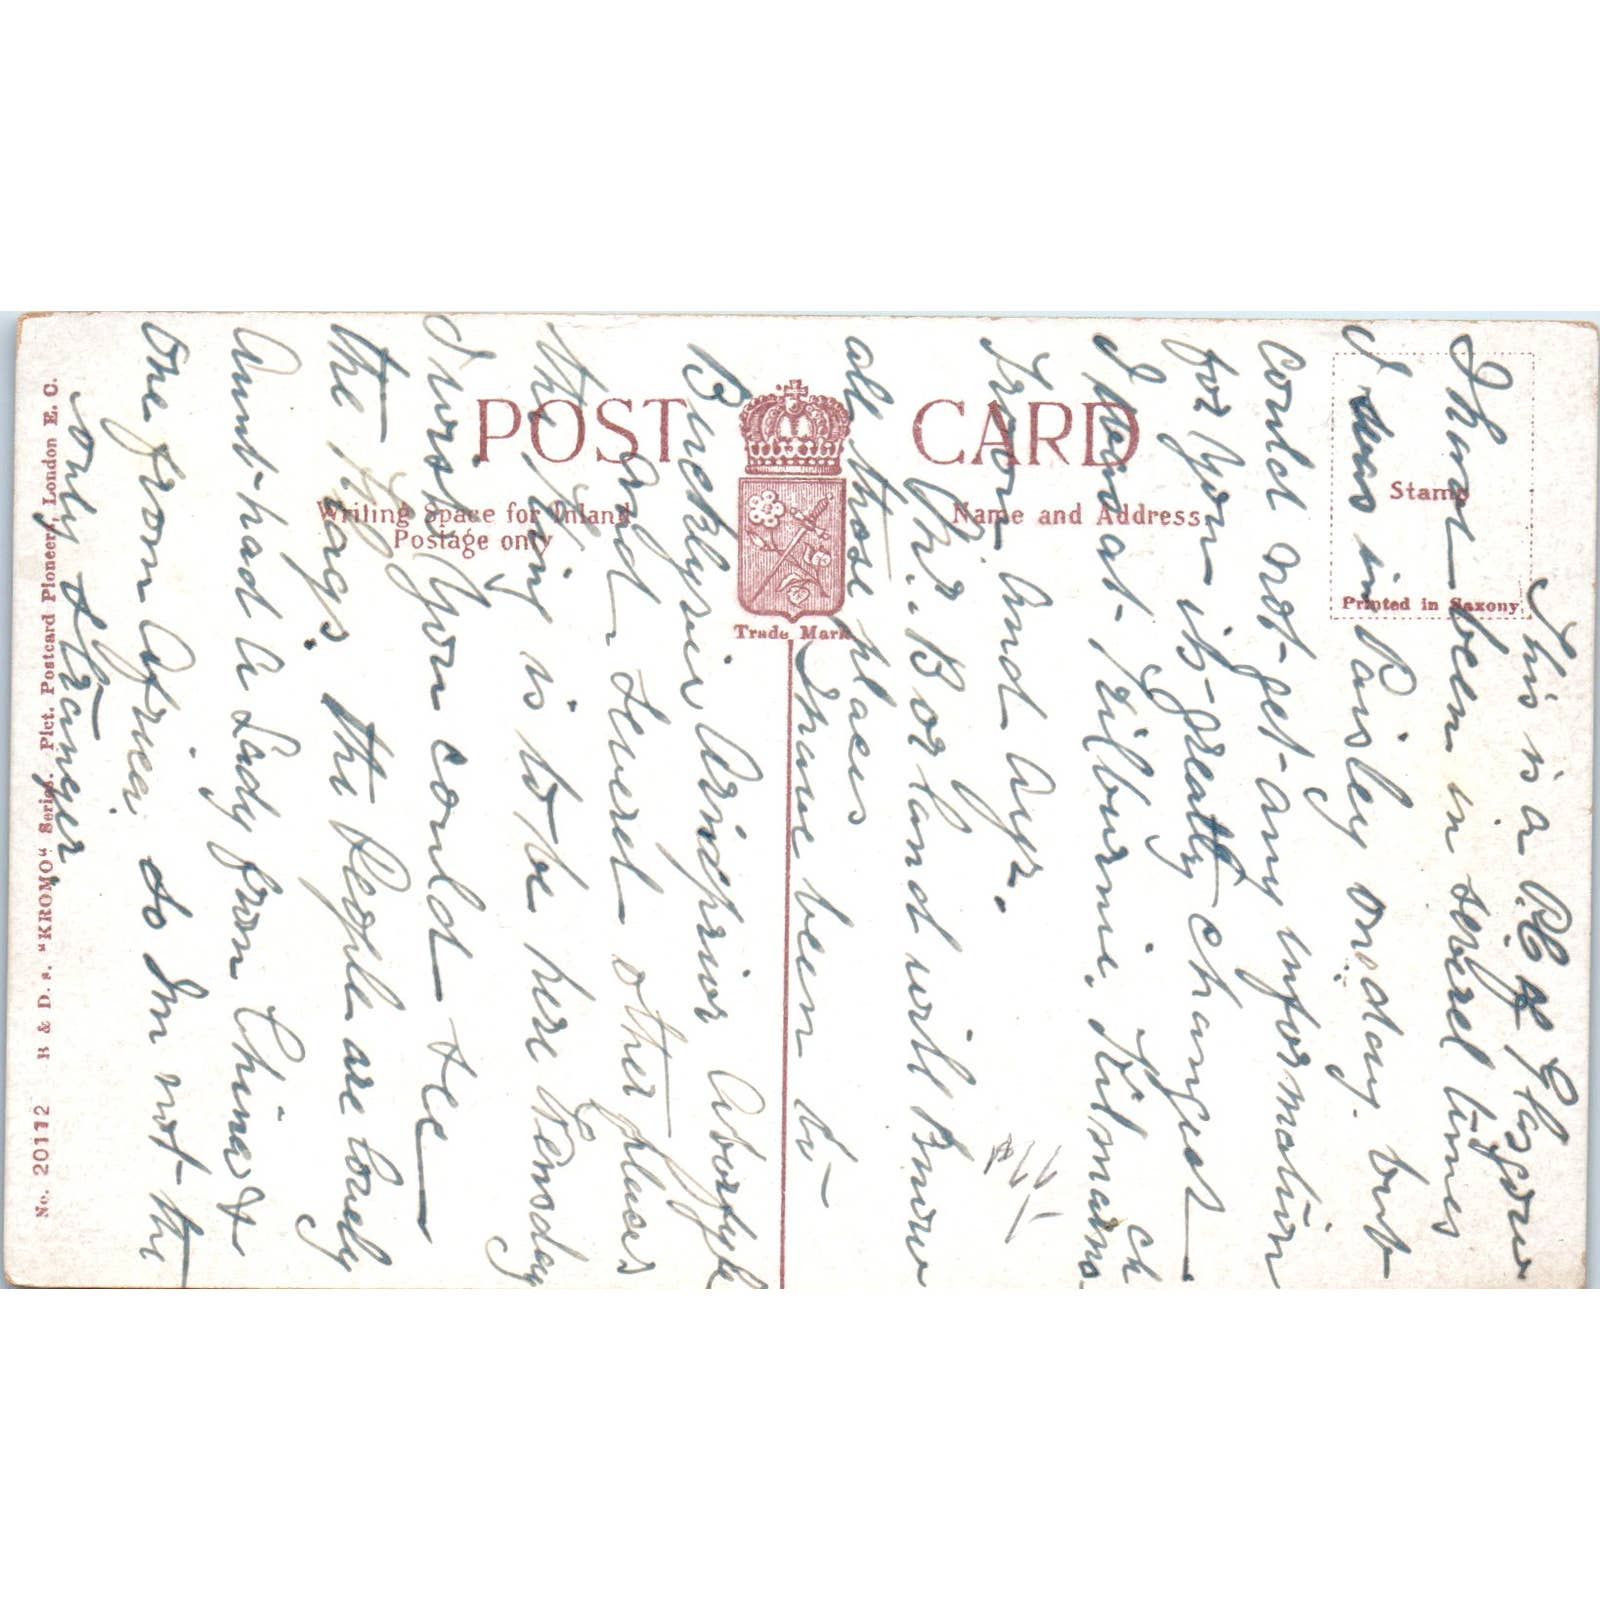 POST CARD
Writing Space for Inland
Postage only
Name and Address
Stamp
Printed in Saxony
Trade Mark
No. 20112 B & D. s. "KROMO" Series. Pict. Postcard Pioneers, London E. C.
This is a P.C. of Glasgow
I have been in severel times
I was in Paisley on day. but
could not get any information
for you its greatly changed
I was at Kilburnie. Kilmarns. ch
Troon and Ayr.
Mr. Borland will know
all those places
I have been to
Bucklyvie Arinprior Aborfyle
and severel other places
the King is to be here Wensday
I wish you could see
the flags. the people are lovely
Aunt had a Lady from China &
one from Africa. so Im not the
only stranger.